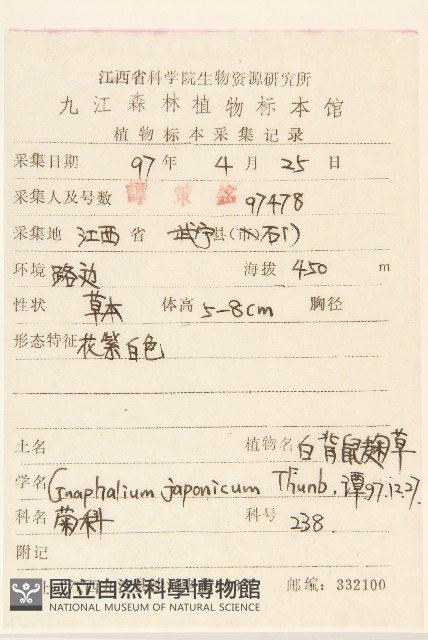 江西省科学院生物资源研究所
九江森林植物标本馆
植物标本采集记录
采集日期 97 年 4 月 25 日
采集人及号数 譚策銘 97478
采集地 江西 省 武宁县(市)石门
环境 路边 海拔 450 m
性状 草本 体高 5-8cm 胸径
形态特征 花繁白色
土名 植物名 白背鼠麹草
学名 Gnaphalium japonicum Thunb. 谭97.12.27.
科名 菊科 科号 238.
附记
邮编: 332100
國立自然科學博物館
NATIONAL MUSEUM OF NATURAL SCIENCE